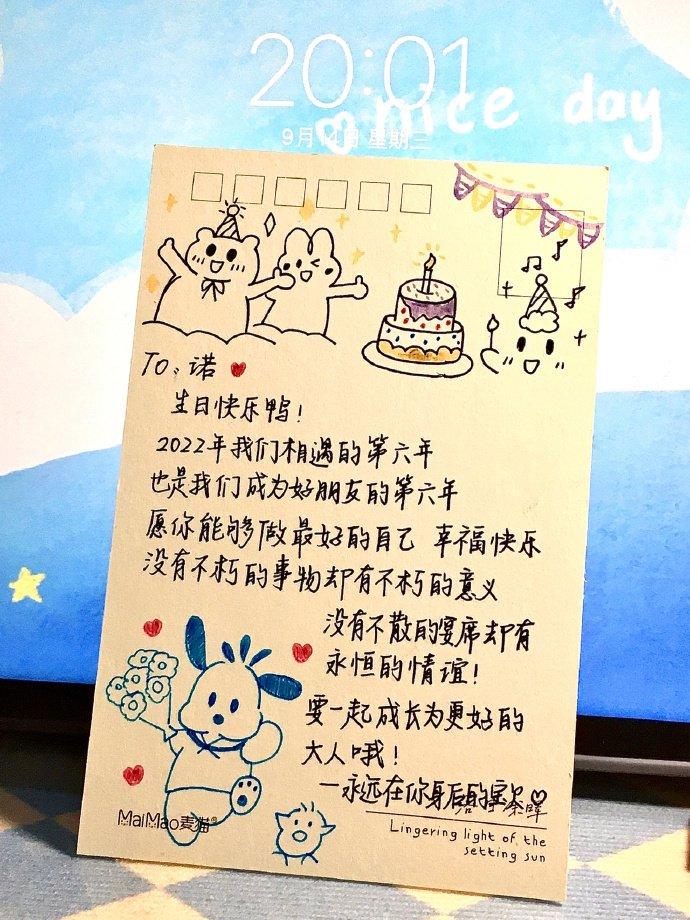 20:01
nice day
9月14日 星期三
TO：诺
生日快乐鸭！
2022年我们相遇的第六年
也是我们成为好朋友的第六年
愿你能够做最好的自己 幸福快乐
没有不朽的事物却有不朽的意义
没有不散的宴席却有
永恒的情谊！
要一起成长为更好的
大人哦！
—永远在你身后的
余晖
MaiMao麦猫®
Lingering light of the
setting sun